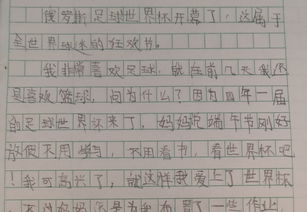 俄罗斯足球世界杯开幕了，这属于
全世界球迷的狂欢节。
我非常喜欢足球，就在前几天我还
是喜欢篮球，问为什么？因为四年一届
的足球世界杯来了，妈妈说端午节刚好
放假不用学习，不用看书，看世界杯吧
！我可高兴了，就这样我爱上了世界杯
不过妈妈还是为我布置了一些作业